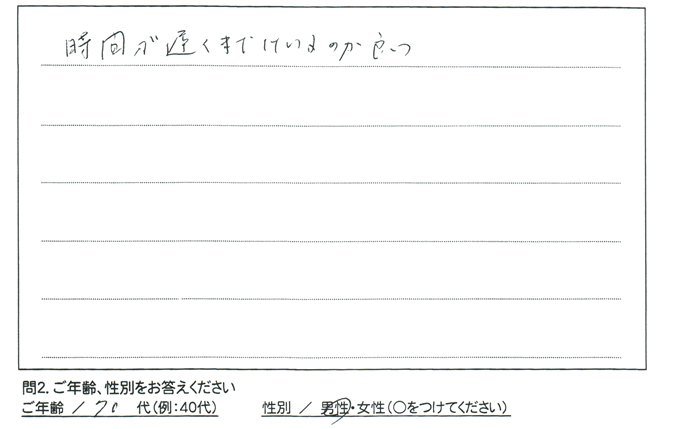 時間が遅くまでけいるのが良つ
問2. ご年齢、性別をお答えください
ご年齢 / 70 代(例:40代) 性別 / 男性・女性(○をつけてください)